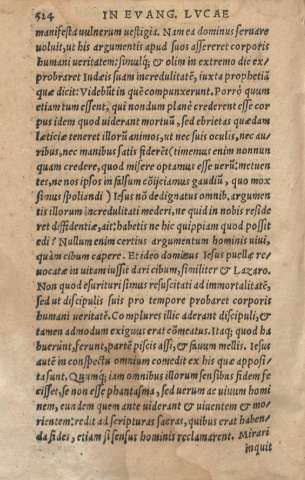 524 IN EVANG. LVCAE
manifesta uulnerum uestigia. Nam ea dominus seruare
uoluit, ut his argumentis apud suos assereret corporis
humani ueritatem: simulq́; & olim in extremo die ex-
probraret Iudæis suam incredulitatē, iuxta prophetiā
quæ dicit: Videbūt in quē compunxerunt. Porrò quum
etiam tum essent, qui nondum planè crederent esse cor
pus idem quod uiderant mortuū, sed ebrietas quædam
læticiæ teneret illorū animos, ut nec suis oculis, nec au-
ribus, nec manibus satis fiderēt (timemus enim nonnun
quam credere, quod misere optamus esse uerū: metuen
tes, ne nos ipsos in falsum cōijciamus gaudiū, quo mox
simus spoliandi) Iesus nō dedignatus omnib. argumen-
tis illorum incredulitati mederi, ne quid in nobis reside
ret diffidentiæ, ait: habetis ne hic quippiam quod possit
edi? Nullum enim certius argumentum hominis uiui,
quàm cibum capere. Et ideo dominus Iesus puellæ re-
uocatæ in uitam iussit dari cibum, similiter & Lazaro.
Non quod esurituri simus resuscitati ad immortalitatē,
sed ut discipulis suis pro tempore probaret corporis
humani ueritatē. Complures illic aderant discipuli, &
tamen admodum exiguus erat cōmeatus. Itaq; quod ha
buerūnt, ferunt, partē piscis assi, & fauum mellis. Iesus
autē in conspectu omnium comedit ex his quæ apposi-
ta sunt. Qumq́; iam omnibus illorum sensibus fidem fe
cisset, se non esse phantasma, sed uerum ac uiuum homi
nem, eundem quem ante uiderant & uiuentem & mo-
rientem: redit ad scripturas sacras, quibus erat haben-
da fides, etiam si sensus hominis reclamarent. Mirari
inquit